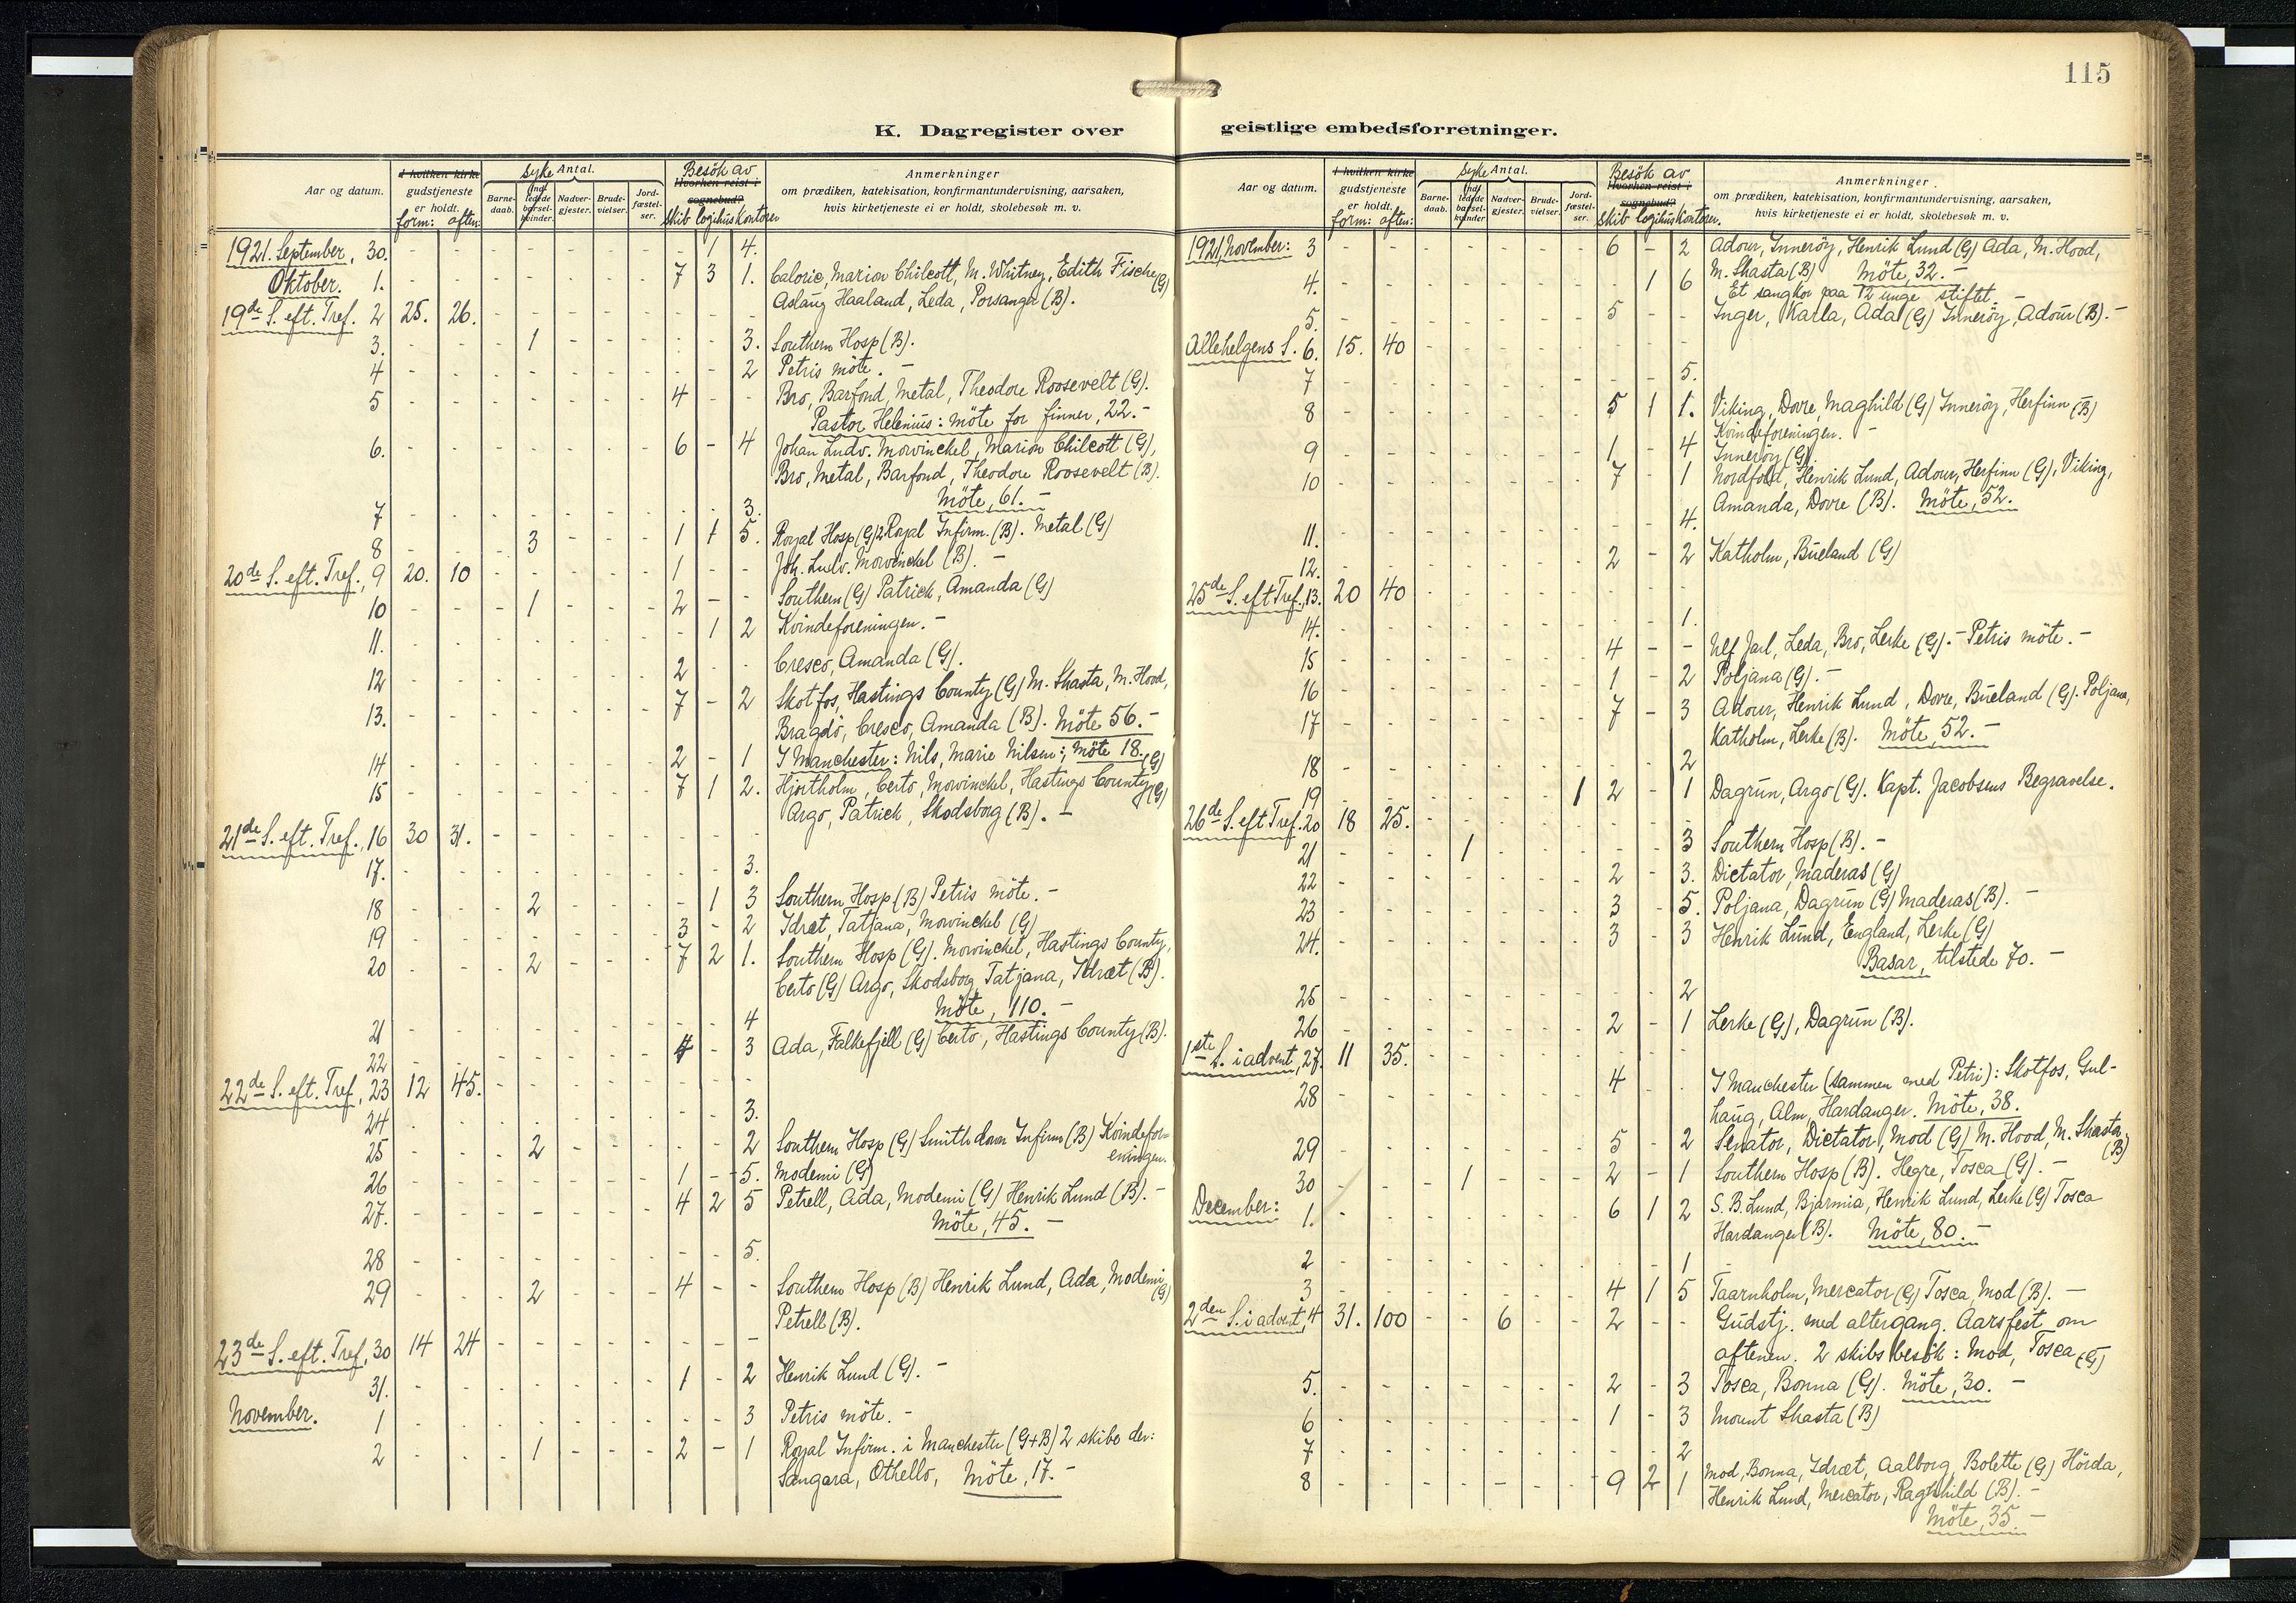 115
K. Dagregister over geistlige embedsforretninger.
Aar og datum.
I hvilken kirke gudstjeneste er holdt.
form: aften:
Syke Antal.
Barne-daab.
Ind-ledede barsel-kvinder.
Nadver-gjester.
Brude-vielser.
Jord-fæstel-ser.
Besök av
Hvorhen reist i sognebud?
Skib logihus kontorer
Anmerkninger
om prædiken, katekisation, konfirmantundervisning, aarsaken,
hvis kirketjeneste ei er holdt, skolebesøk m. v.
1921. September, 30. - - - - - - - - 1 4.
Oktober. 1. - - - - - - - 7 3 1. Caloric, Marion Chilcott, M. Whitney, Edith Fische (G)
Aslaug Haaland, Leda, Porsanger (B).
19de S. eft. Tref. 2 25. 26. - - - - - - - -
3. - - - 1 - - - - - 3. Southern Hosp (B).
4 - - - - - - - - - 2 Petris möte. -
5 - - - - - - - 4 - - Bro, Barfond, Metal, Theodore Roosevelt (G).
Pastor Helenius: möte for finner, 22. -
6. - - - - - - - 6 - 4 Johan Ludv. Mowinckel, Marion Chilcott (G),
Bro, Metal, Barfond, Theodore Roosevelt (B).
Möte, 61. -
7 - - - - - - - - - 3.
8 - - - 3 - - - 1 1 5. Royal Hosp (G) 2 Royal Infirm. (B). Metal (G)
20de S. eft. Tref., 9 20. 10 - - - - - 1 - - Joh. Ludv. Mowinckel (B). -
10 - - - 1 - - - 2 - - Southern (G) Patrick, Amanda (G)
11. - - - - - - - - 1 2 Kvindeforeningen. -
12 - - - - - - - 2 - - Cresco, Amanda (G).
13. - - - - - - - 7 - 2 Skotfos, Hastings County (G) M. Shasta, M. Hood,
Bragdö, Cresco, Amanda (B). Möte 56. -
14 - - - - - - - 2 - 1 I Manchester: Nils, Marie Nilsen; möte 18. (G)
15 - - - - - - - 7 1 2. Hjortholm, Certo, Mowinckel, Hastings County (G)
Argo, Patrick, Skodsborg (B). -
21de S. eft. Tref., 16 30 31. - - - - - - - -
17. - - - - - - - - - 3.
18 - - - 2 - - - - 1 3 Southern Hosp (B) Petris möte. -
19 - - - - - - - 3 - 2 Idræt, Tatjana, Mowinckel (G)
20 - - - 2 - - - 7 2 1. Southern Hosp (G). Mowinckel, Hastings County,
Certo (G) Argo, Skodsborg, Tatjana, Idræt (B).
Möte, 110. -
21 - - - - - - - - - 4
22 - - - - - - - 4 - 3 Ada, Falkefjell (G) Certo, Hastings County (B).
22de S. eft. Tref, 23 12 45. - - - - - - - -
24 - - - - - - - - - 3.
25 - - - 2 - - - - - 2 Southern Hosp (G) Smithdown Infirm (B) Kvindefor-
eningen.
26 - - - - - - - 1 - 5. Modemi (G)
27. - - - - - - - 4 2 5 Petrell, Ada, Modemi (G) Henrik Lund (B). -
Möte, 45. -
28 - - - - - - - - - 5.
29 - - - 2 - - - 4 - - Southern Hosp (B) Henrik Lund, Ada, Modemi (G)
Petrell (B).
23de S. eft. Tref, 30 14 24 - - - - - - - -
31. - - - - - - - 1 - 2 Henrik Lund (G). -
November. 1 - - - - - - - - - 3 Petris möte. -
2 - - - 1 - - - 2 - 1 Royal Infirm. i Manchester (G+B) 2 skibe der:
Sangara, Othello, Möte, 17. -
Aar og datum.
I hvilken kirke gudstjeneste er holdt.
form: aften:
Syke Antal.
Barne-daab.
Ind-ledede barsel-kvinder.
Nadver-gjester.
Brude-vielser.
Jord-fæstel-ser.
Besök av
Hvorhen reist i sognebud?
Skib logihus Kontorer.
Anmerkninger
om prædiken, katekisation, konfirmantundervisning, aarsaken,
hvis kirketjeneste ei er holdt, skolebesøk m. v.
1921, November: 3 - - - - - - - 6 - 2 Adour, Inneröy, Henrik Lund (G) Ada, M. Hood,
M. Shasta (B) Möte, 32. -
4. - - - - - - - - 1 6 Et sangkor paa 12 unge stiftet. -
5. - - - - - - - 5 - - Inger, Karla, Ada (G) Inneröy, Adour (B). -
Allehelgens S. 6. 15. 40 - - - - - - - -
7 - - - - - - - - - 5.
8 - - - - - - - 5 1 1. Viking, Dovre, Maghild (G) Inneröy, Herfinn (B)
Kvindeforeningen. -
9 - - - - - - - 1 - 4 Inneröy (G).
10 - - - - - - - 7 - 1 Nordfold, Henrik Lund, Adour, Herfinn (G), Viking,
Amanda, Dovre (B). Möte, 52.
11. - - - - - - - - - 4.
12. - - - - - - - 2 - 2 Katholm, Bueland (G)
25de S. eft Tref., 13. 20 40 - - - - - - - -
14. - - - - - - - - - 1.
15 - - - - - - - 4 - - Ulf Jarl, Leda, Bro, Lerke (G). - Petris möte. -
16 - - - - - - - 1 - 2 Poljana (G). -
17 - - - - - - - 7 - 3 Adour, Henrik Lund, Dovre, Bueland (G). Poljana,
Katholm, Lerke (B). Möte, 52. -
18 - - - - - - - - - 2
19 - - - - - - 1 2 - 1 Dagrun, Argo (G). Kapt. Jacobsens Begravelse.
26de S. eft Tref. 20 18 25. - - - - - - - -
21 - - - 1 - - - - - 3 Southern Hosp (B). -
22 - - - - - - - 2 - 3. Dictator, Maderas (G)
23 - - - - - - - 3 - 5. Poljana, Dagrun (G) Maderas (B). -
24. - - - - - - - 3 - 3 Henrik Lund, England, Lerke (G)
Basar, tilstede 70. -
25 - - - - - - - - - 2
26 - - - - - - - 2 - 1 Lerke (G), Dagrun (B).
1ste S. i advent, 27. 11 35. - - - - - - - -
28 - - - - - - - 4 - - I Manchester (sammen med Petri): Skotfos, Gul-
haug, Alm, Hardanger. Möte, 38.
29 - - - - - - - 5 - 2 Senator, Dictator, Mod (G) M. Hood, M. Shasta (B)
30 - - - 1 - - - 2 - 1 Southern Hosp (B). Hegre, Tosca (G). -
December: 1. - - - - - - - 6 1 2 S. B. Lund, Bjarmia, Henrik Lund, Lerke (G) Tosca
Hardanger (B). Möte, 80. -
2 - - - - - - - - - 1 -
3 - - - - - - - 4 1 5 Taarnholm, Mercator (G) Tosca, Mod (B). -
2den S. i advent, 4 31. 100 - - 6 - - 2 - - Gudstj. med altergang. Aarsfest om
aftenen. 2 skibsbesök: Mod, Tosca (G)
5. - - - - - - - 2 - 3 Tosca, Bonna (G). Möte, 30. -
6 - - - - - - - 1 - 3 Mount Shasta (B)
7 - - - - - - - - - 2
8 - - - - - - - 9 2 1 Mod, Bonna, Idræt, Aalborg, Bolette (G) Hörda,
Henrik Lund, Mercator, Raghild (B). -
Möte, 35. -